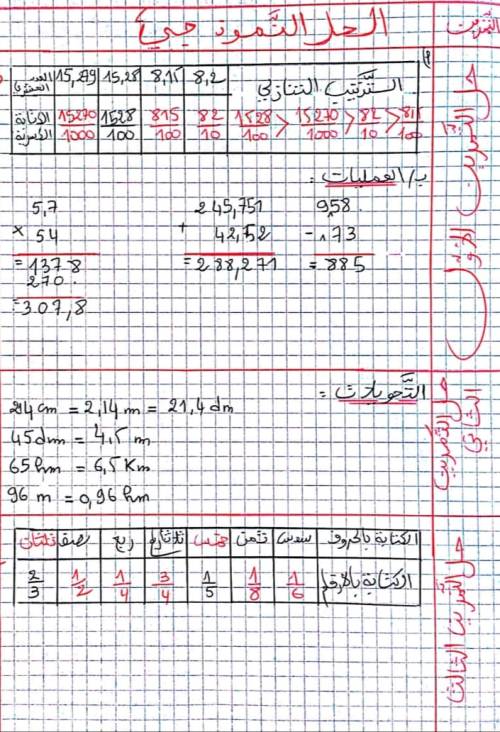 التمرين
الحل النموذجي
حل التمرين الأول
أ/
العدد العشري 15,279 15,28 8,15 8,2 الترتيب التنازلي
الكتابة الكسرية 15270/1000 1528/100 815/100 82/10 1528/100 > 15270/1000 > 82/10 > 815/100
ب/ العمليات :
5,7 × 54 = 1378 270. = 307,8
245,751 + 42,52 = 288,271
958 - 73 = 885
حل التمرين الثاني
التحويلات :
214 cm = 2,14 m = 21,4 dm
45 dm = 4,5 m
65 hm = 6,5 Km
96 m = 0,96 hm
حل التمرين الثالث
الكتابة بالحروف سدس ثمن خمس ثلاثة أرباع ربع نصف ثلثان
الكتابة بالأرقام 1/6 1/8 1/5 3/4 1/4 1/2 2/3